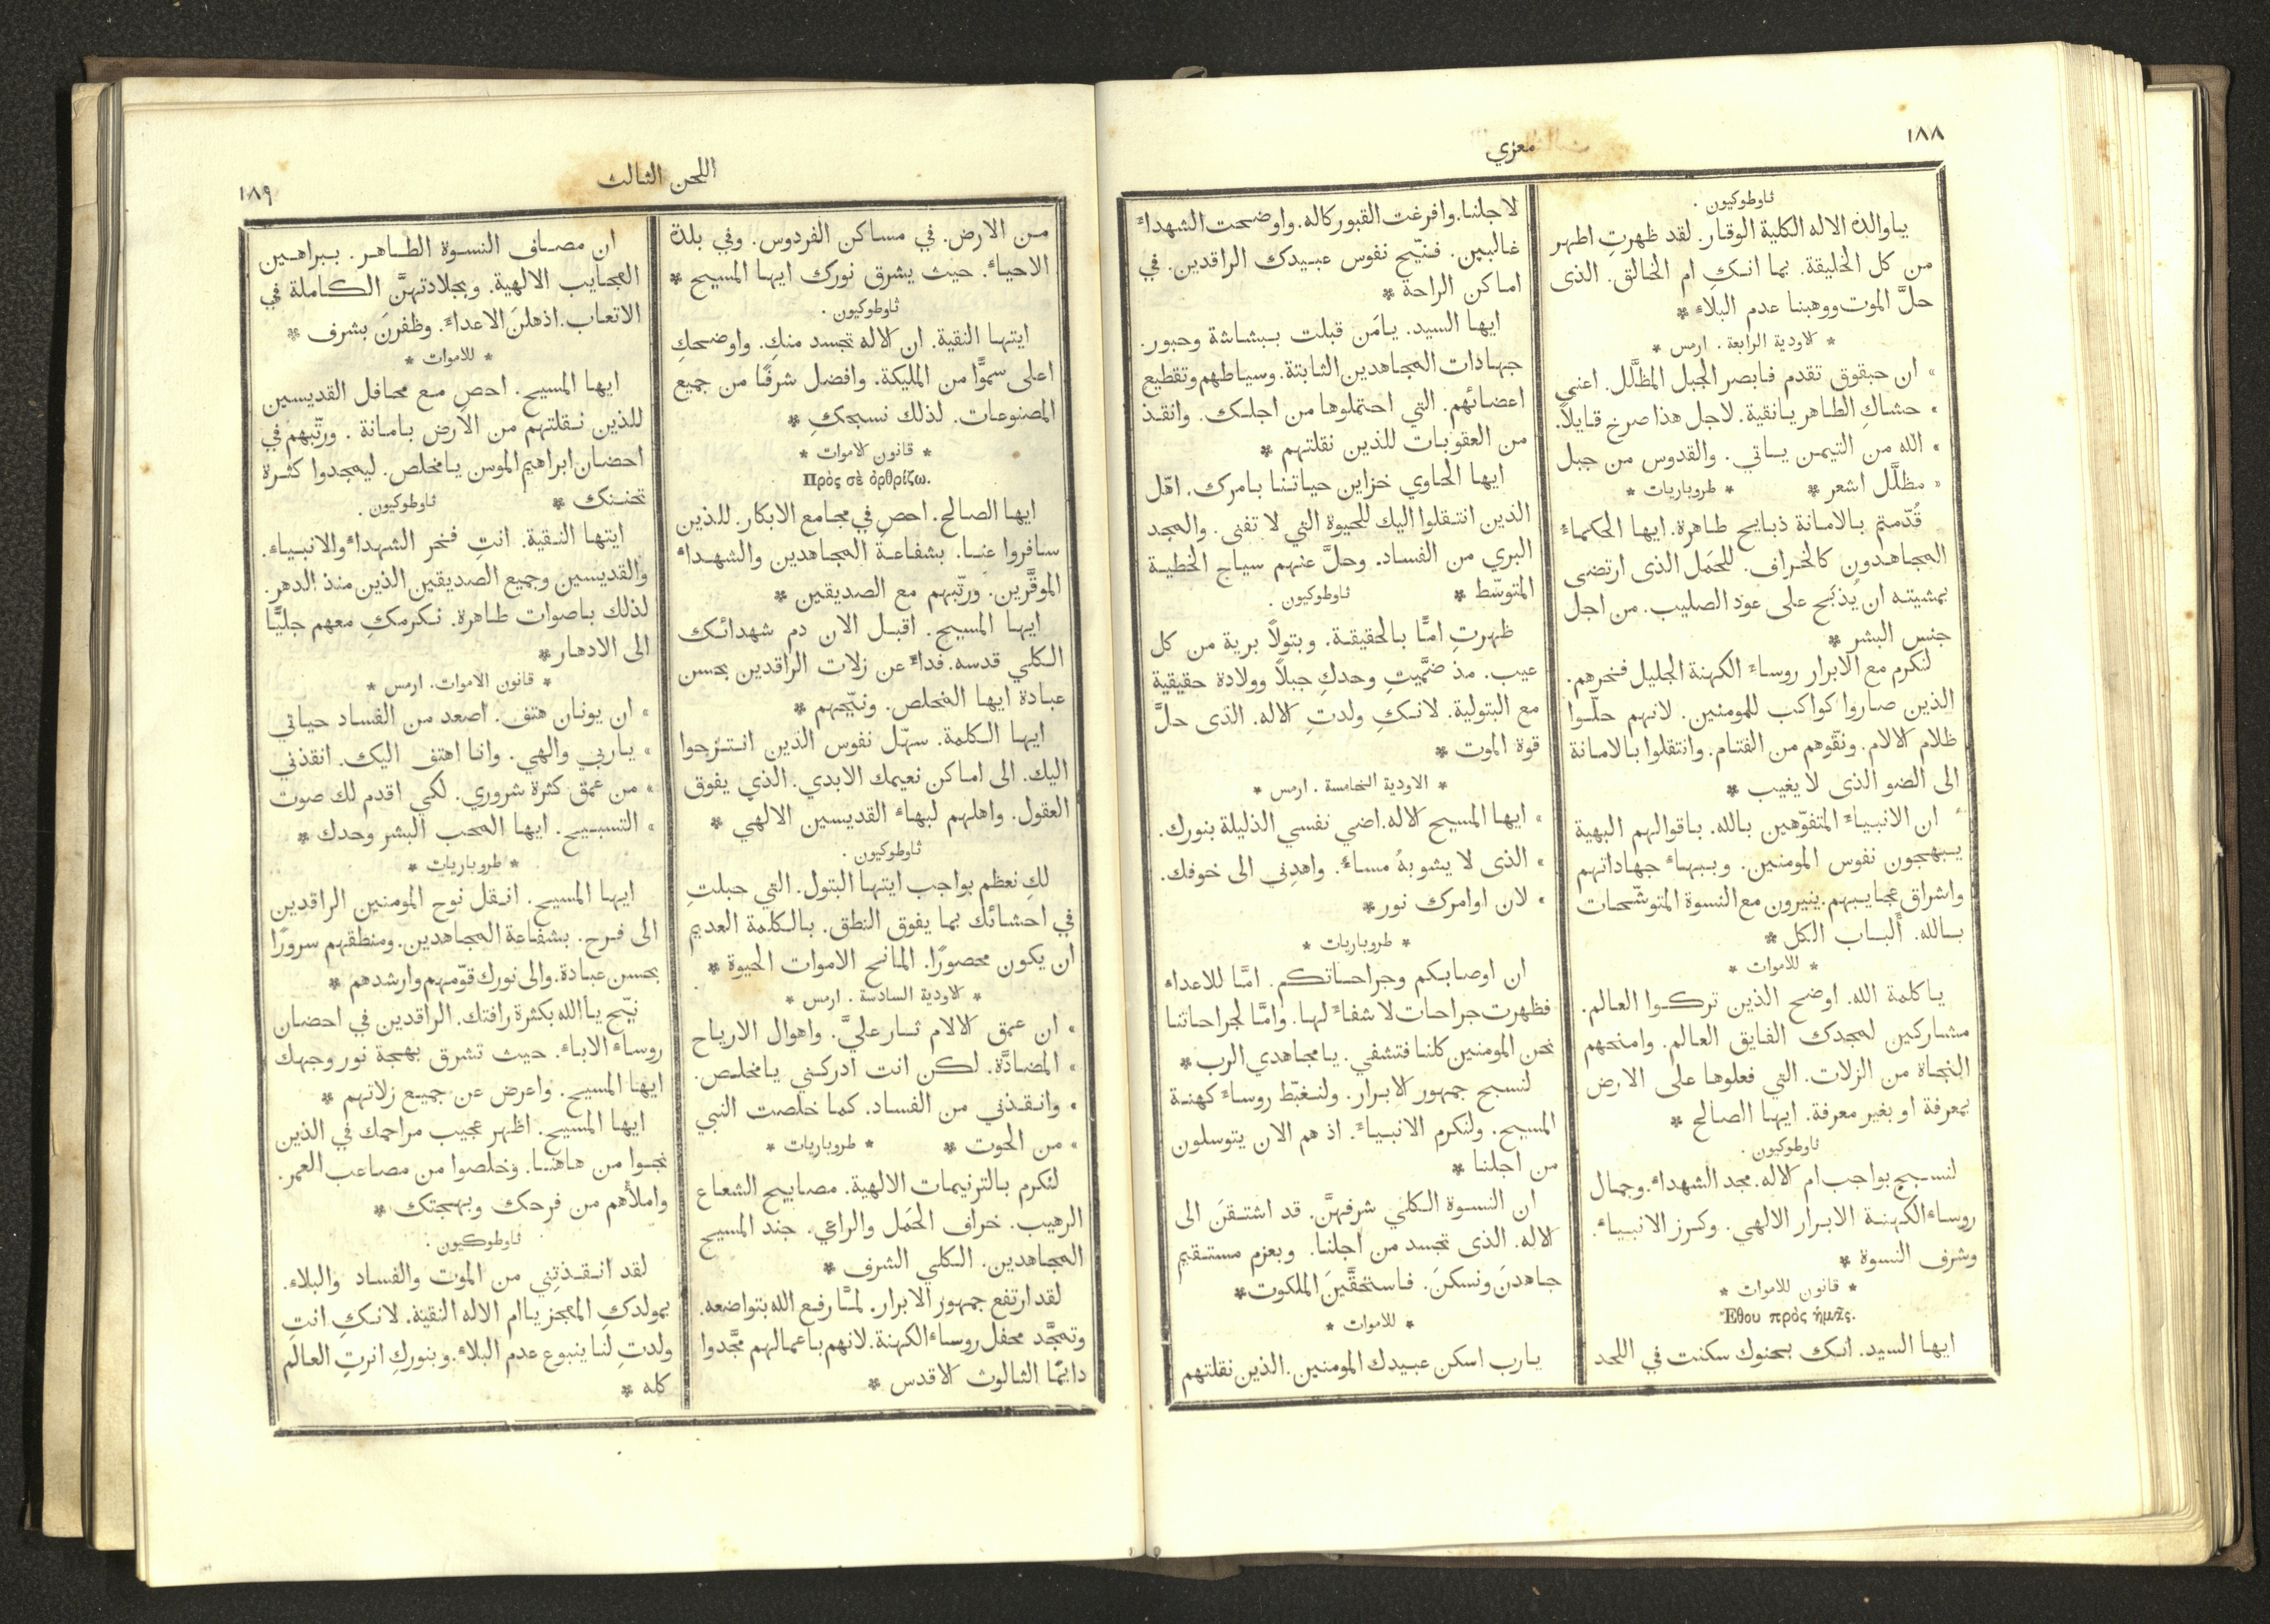 ١٨٨
معزي
ثاوطوكيون .
ياوالدة الاله الكلية الوقار. لقد ظهرتِ اطهر
من كل الخليقة. بما انكِ ام الخالق. الذى
حلَّ الموت ووهبنا عدم البلاء *
* الاودية الرابعة . ارمس *
» ان حبقوق تقدم فابصر الجبل المظلَّل. اعني
» حشاكِ الطاهر يانقية. لاجل هذا صرخ قايلاً.
» الله من التيمن ياتي. والقدوس من جبل
» مظلَّل اشعر * * طروباريات *
قُدّمتم بالامانة ذبايح طاهرة. ايها الحكماء
المجاهدون كالخراف. للحَمَل الذى ارتضى
بمشيته ان يُذبَح على عود الصليب. من اجل
جنس البشر *
لنكرم مع الابرار روساء الكهنة الجليل فخرهم.
الذين صاروا كواكب للمومنين. لانهم حلّوا
ظلام الالام. ونقّوهم من القتام. وانتقلوا بالامانة
الى الضو الذى لا يغيب *
ان الانبياء المتفوّهين بالله. باقوالهم البهية
يبهجون نفوس المومنين. وببهاء جهاداتهم
واشراق عجايبهم. ينيرون مع النسوة المتوشّحات
بالله. ألباب الكل *
* للاموات *
ياكلمة الله. اوضح الذين تركوا العالم.
مشاركين لمجدك الفايق العالم. وامنحهم
النجاة من الزلات. التي فعلوها على الارض
بمعرفة او بغير معرفة. ايها الصالح *
ثاوطوكيون .
لنسبح بواجب ام الاله. مجد الشهداء. وجمال
روساء الكهنة الابرار الالهي. وكرز الانبياء.
وشرف النسوة *
* قانون للاموات *
Ἔθου πρὸς ἡμᾶς.
ايها السيد. انك بحنوك سكنت في اللحد
لاجلنا. وافرغت القبور كاله. واوضحت الشهداء
غالبين. فنيّح نفوس عبيدك الراقدين. في
اماكن الراحة *
ايها السيد. يامَن قبلت ببشاشة وحبور.
جهادات المجاهدين الثابتة. وسياطهم وتقطيع
اعضائهم. التي احتملوها من اجلك. وانقذ
من العقوبات للذين نقلتهم *
ايها الحاوي خزاين حياتنا بامرك. اهّل
الذين انتقلوا اليك للحيوة التي لا تفنى. والمجد
البري من الفساد. وحلَّ عنهم سياج الخطية
المتوسّط * ثاوطوكيون .
ظهرتِ امًّا بالحقيقة. وبتولاً برية من كل
عيب. مذ ضمَّيتِ وحدكِ حبلاً وولادة حقيقية
مع البتولية. لانكِ ولدتِ الاله. الذى حلَّ
قوة الموت *
* الاودية الخامسة . ارمس *
» ايها المسيح الاله. اضي نفسي الذليلة بنورك.
» الذى لا يشوبهُ مساءٌ. واهدِني الى خوفك.
» لان اوامرك نور *
* طروباريات *
ان اوصابكم وجراحاتكم. امَّا للاعداء
فظهرت جراحات لا شفاء لها. وامَّا لجراحاتنا
نحن المومنين كلنا فتشفي. يا مجاهدي الرب *
لنسبح جمهور الابرار. ولنغبّط روساء كهنة
المسيح. ولنكرم الانبياء. اذ هم الان يتوسلون
من اجلنا *
ان النسوة الكلي شرفهنَّ. قد اشتقنَ الى
الاله. الذى تجسد من اجلنا. وبعزم مستقيم
جاهدنَ ونسكنَ. فاستحقَّينَ الملكوت *
* للاموات *
يارب اسكن عبيدك المومنين. الذين نقلتهم
اللحن الثالث
١٨٩
من الارض. في مساكن الفردوس. وفي بلدة
الاحياء. حيث يشرق نورك ايها المسيح *
ثاوطوكيون .
ايتها النقية. ان الاله تجسد منكِ. واوضحكِ
اعلى سموًّا من المليكة. وافضل شرفًا من جميع
المصنوعات. لذلك نسبحكِ *
* قانون الاموات *
Πρὸς σὲ ὀρθρίζω.
ايها الصالح. احصِ في مجامع الابكار. للذين
سافروا عنا. بشفاعة المجاهدين والشهداء
الموقَّرين. ورتّبهم مع الصديقين *
ايها المسيح. اقبل الان دم شهدائك
الكلي قدسه. فداءً عن زلات الراقدين بحسن
عبادة ايها المخلص. ونيّحهم *
ايها الكلمة. سهّل نفوس الذين انتزحوا
اليك. الى اماكن نعيمك الابدي. الذي يفوق
العقول. واهلهم لبهاء القديسين الالهي *
ثاوطوكيون .
لكِ نعظم بواجب ايتها البتول. التي حبلتِ
في احشائك بما يفوق النطق. بالكلمة العديم
ان يكون محصورًا. المانح الاموات الحيوة *
* الاودية السادسة . ارمس *
» ان عمق الالام ثار عليَّ. واهوال الارياح
» المضادَّة. لكن انت ادركني يامخلص.
» وانقذني من الفساد. كما خلصت النبي
» من الحوت * * طروباريات *
لنكرم بالترنيمات الالهية. مصابيح الشعاع
الرهيب. خراف الحَمَل والراعي. جند المسيح
المجاهدين. الكلي الشرف *
لقد ارتفع جمهور الابرار. لمَّا رفع الله بتواضعه.
وتمجَّد محفل روساء الكهنة. لانهم باعمالهم مجَّدوا
دائمًا الثالوث الاقدس *
ان مصاف النسوة الطاهر. ببراهين
العجايب الالهية. وبجلادتهنَّ الكاملة في
الاتعاب. اذهلنَ الاعداء. وظفرنَ بشرف *
* للاموات *
ايها المسيح. احصِ مع محافل القديسين
للذين نقلتهم من الارض بامانة . ورتّبهم في
احضان ابراهيم الموسن يامخلص. ليمجدوا كثرة
تحننك * ثاوطوكيون .
ايتها النقية. انتِ فخر الشهداء والانبياء.
والقديسين وجميع الصديقين الذين منذ الدهر.
لذلك باصوات طاهرة. نكرمكِ معهم جليًّا
الى الادهار *
* قانون الاموات. ارمس *
» ان يونان هتف. اصعد من الفساد حياتي
» ياربي والهي. وانا اهتف اليك. انقذني
» من عمق كثرة شروري. لكي اقدم لك صوت
» التسبيح. ايها المحب البشر وحدك *
* طروباريات *
ايها المسيح. انقل نوح المومنين الراقدين
الى فرح. بشفاعة المجاهدين. ومنطقهم سرورًا
بحسن عبادة. والى نورك قوّمهم وارشدهم *
نيّح ياالله بكثرة رافتك. الراقدين في احضان
روساء الاباء. حيث تشرق بهجة نور وجهك
ايها المسيح. واعرض عن جميع زلاتهم *
ايها المسيح. اظهر عجيب مراحمك في الذين
نجوا من هاهنا. وخلصوا من مصاعب العمر.
واملأهم من فرحك وبهجتك *
ثاوطوكيون .
لقد انقذتِني من الموت والفساد والبلاء.
بمولدكِ المعجز ياام الاله النقية. لانكِ انتِ
ولدتِ لنا ينبوع عدم البلاء. وبنوركِ انرتِ العالم
كله *